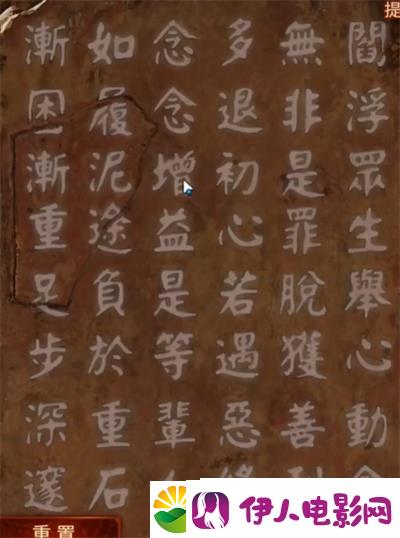 提
閻浮眾生舉心動
無非是罪脫獲善
多退初心若遇惡
念念增益是等輩
如履泥途負於重石
漸困漸重足步深邃
重置
伊人电影网